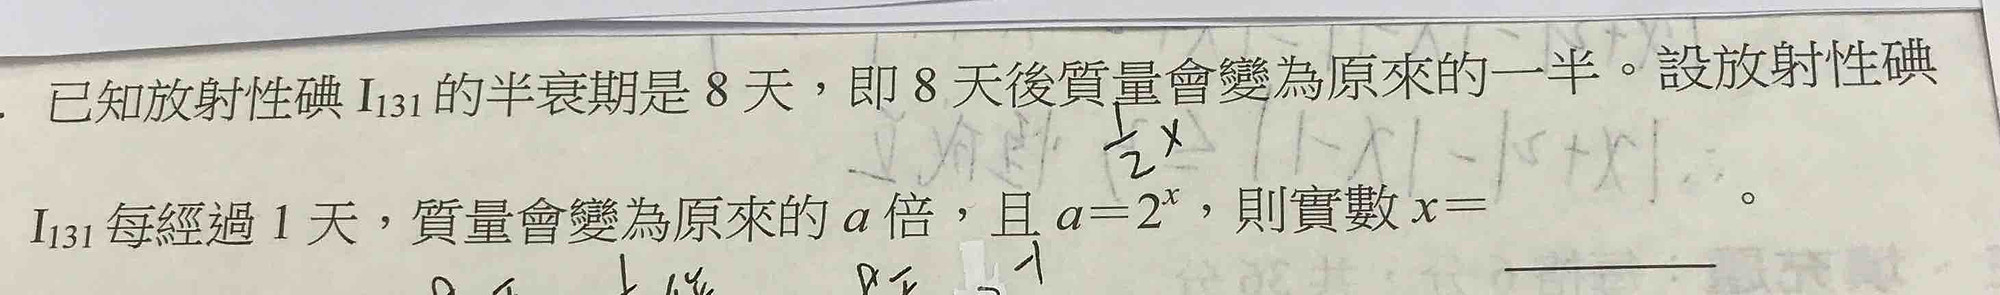 已知放射性碘 I₁₃₁ 的半衰期是 8 天，即 8 天後質量會變為原來的一半。設放射性碘
½x
I₁₃₁ 每經過 1 天，質量會變為原來的 a 倍，且 a=2ˣ，則實數 x=＿＿＿。